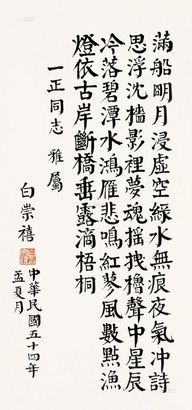 滿船明月浸虛空綠水無痕夜氣冲詩
思浮沈檣影裡夢魂摇拽櫓聲中星辰
冷落碧潭水鴻雁悲鳴紅蓼風數點漁
燈依古岸斷橋垂露滴梧桐
一正同志 雅屬
白崇禧
中華民國五十四年
孟夏月